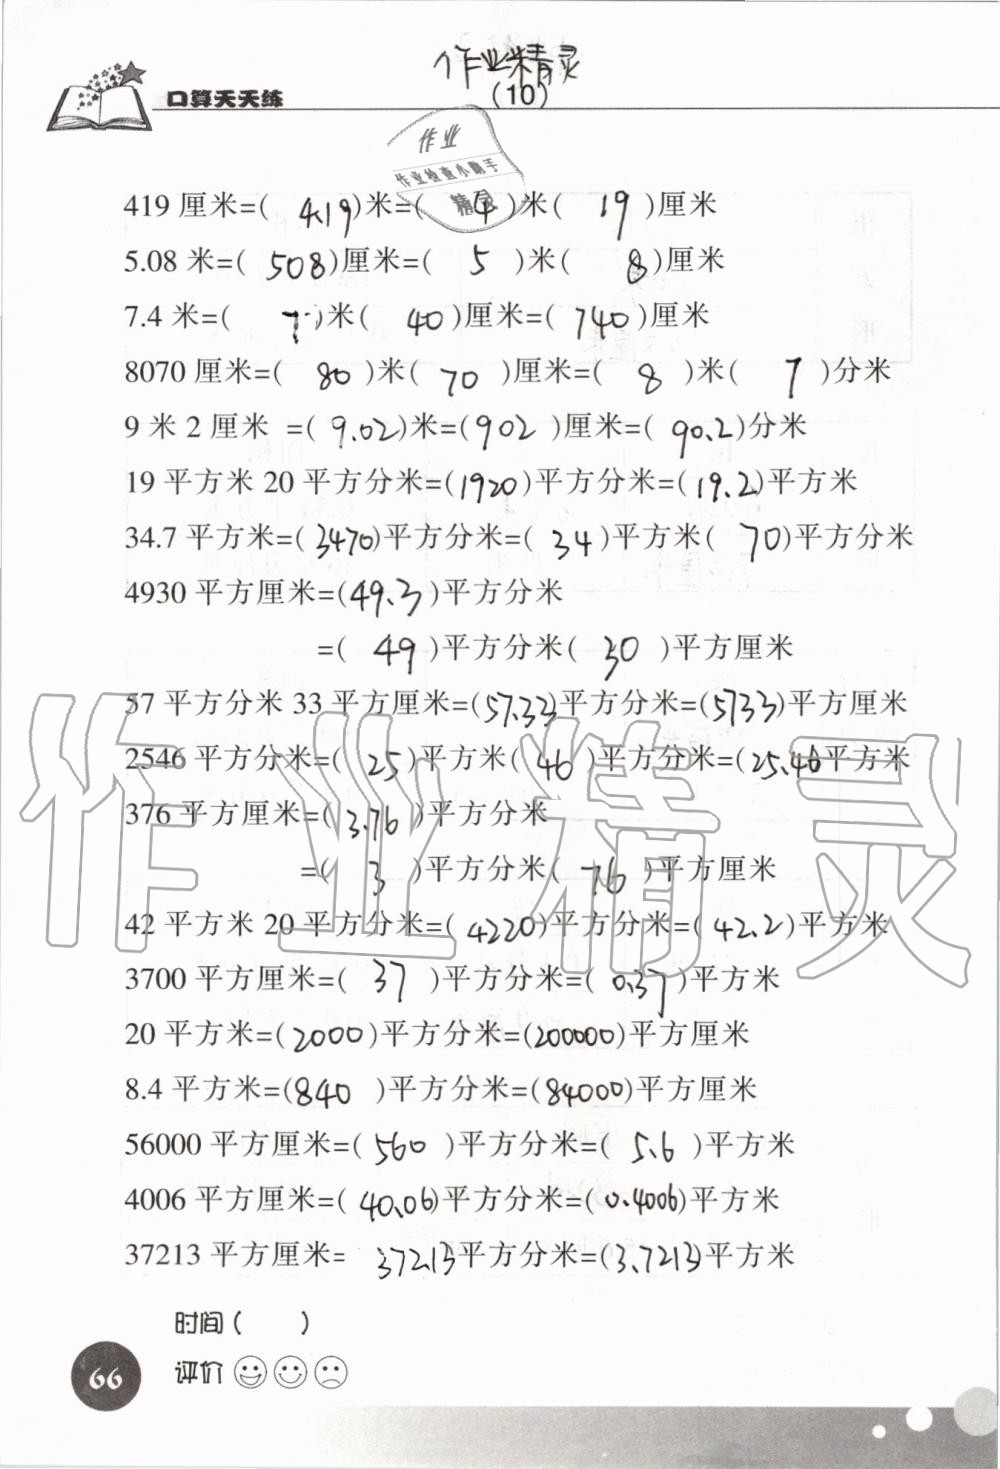 作业精灵
口算天天练 (10)
作业
作业检查小助手
精灵
419厘米=( 4.19)米=( 4 )米( 19 )厘米
5.08 米=( 508)厘米=( 5 )米( 8)厘米
7.4 米=( 7 )米( 40 )厘米=( 740 )厘米
8070厘米=( 80 )米( 70 )厘米=( 8 )米( 7 )分米
9 米 2 厘米 =( 9.02)米=(902 )厘米=( 90.2)分米
19 平方米 20 平方分米=(1920)平方分米=(19.2)平方米
34.7 平方米=( 3470)平方分米=( 34 )平方米( 70)平方分米
4930 平方厘米=(49.3)平方分米
=( 49 )平方分米( 30 )平方厘米
57 平方分米 33 平方厘米=(57.33)平方分米=(5733)平方厘米
2546 平方分米=( 25 )平方米( 46 )平方分米=(25.46平方米
376 平方厘米=( 3.76 )平方分米
=( 3 )平方分米( 76 )平方厘米
42 平方米 20 平方分米=( 4220)平方分米=( 42.2)平方米
3700 平方厘米=( 37 )平方分米=( 0.37)平方米
20 平方米=(2000)平方分米=(200000)平方厘米
8.4 平方米=(840 )平方分米=(84000)平方厘米
56000 平方厘米=( 560 )平方分米=( 5.6 )平方米
4006 平方厘米=( 40.06)平方分米=(0.4006)平方米
37213 平方厘米= 372.13平方分米=(3.7213)平方米
时间( )
评价
66
作业精灵